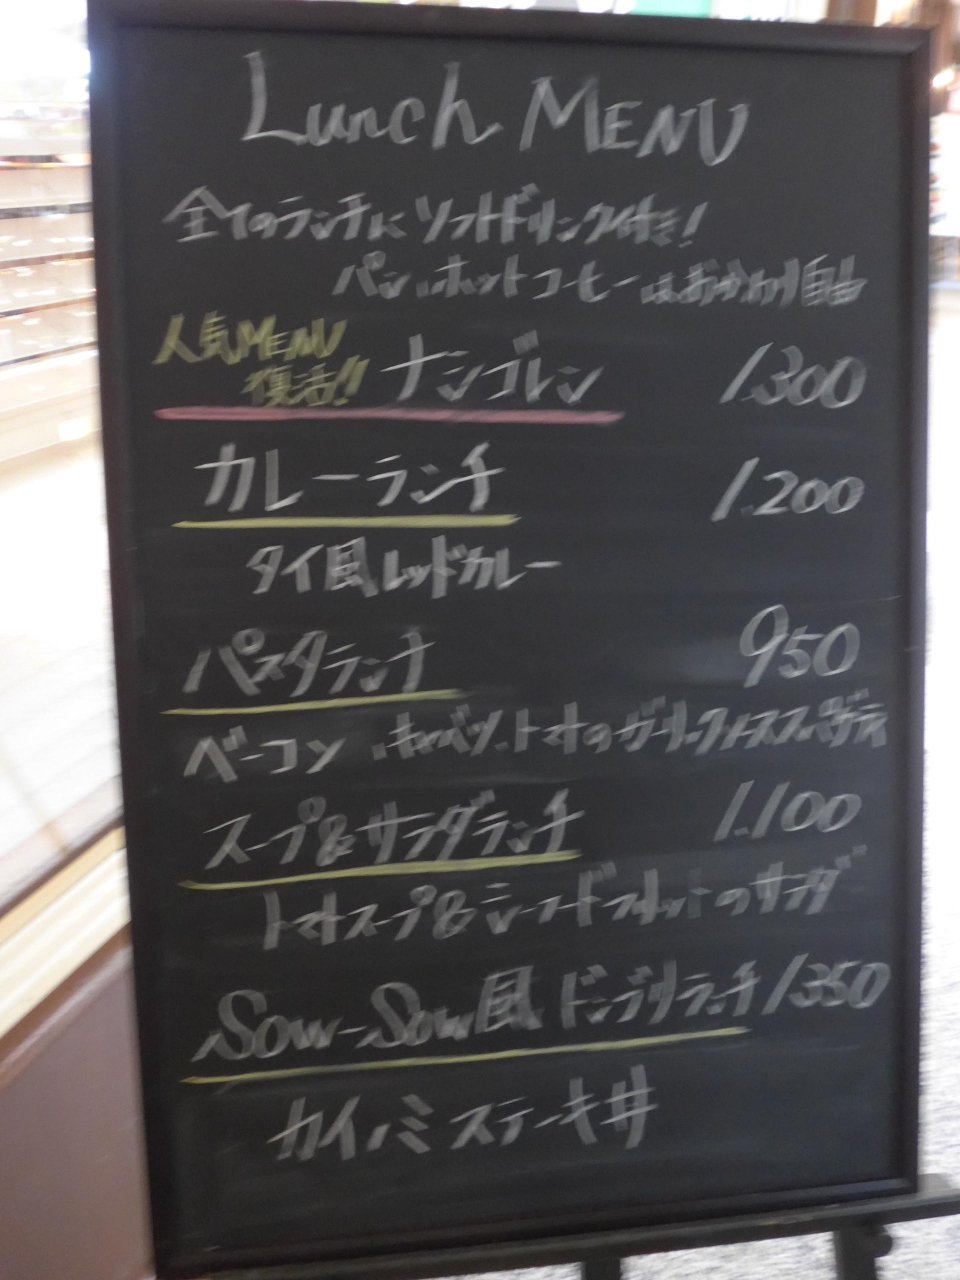 Lunch MENU
全てのランチにソフトドリンク付き!
パン、ホットコーヒーはおかわり自由
人気MENU
復活!! ナシゴレン 1.300
カレーランチ 1.200
タイ風レッドカレー
パスタランチ 950
ベーコン、キャベツ、トマトのガーリック
スープ&サラダランチ 1.100
トマトスープ&シーフードフリットのサラダ
Sow-Sow風 ドンブリランチ 1350
カイノミステーキ丼